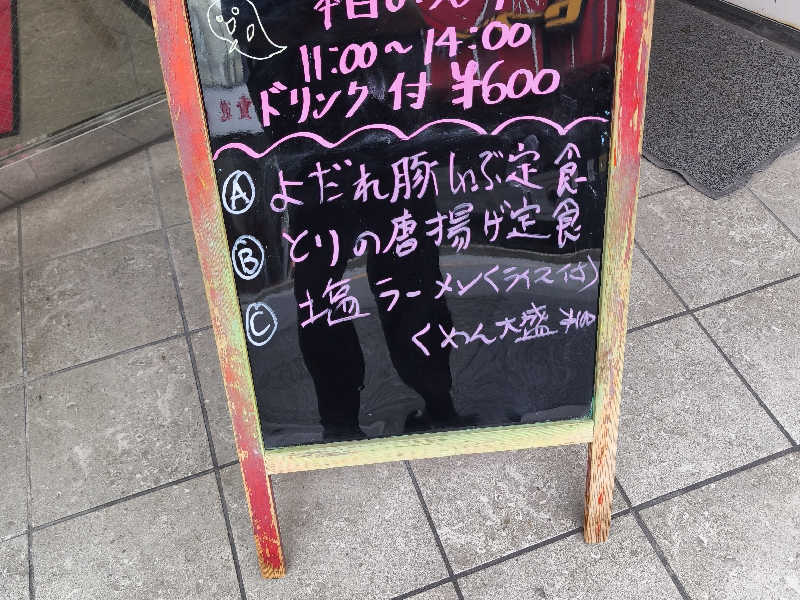 本日のランチ
11:00～14:00
ドリンク付 ¥600
Ⓐ よだれ豚しゃぶ定食
Ⓑ とりの唐揚げ定食
Ⓒ 塩ラーメン(ライス付)
くめん大盛 ¥100